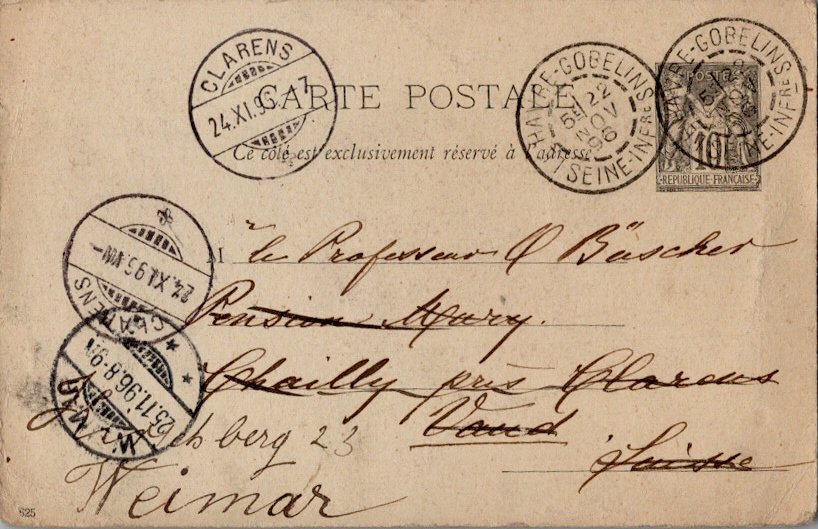 CARTE POSTALE
Ce côté est exclusivement réservé à l'adresse
CLARENS
24.XI.96 - 7
HAVRE-GOBELINS
5E 22 NOV 96
SEINE-INFRE
HAVRE-GOBELINS
5E NOV 96
SEINE-INFRE
POSTES
10
REPUBLIQUE FRANÇAISE
M le Professeur O Büscher
Pension Mury.
Chailly près Clarens
Vaud
Suisse
24.XI.96.VIII-
CLARENS
WEIMAR
25.11.96.8-9V
berg 23
Weimar
625